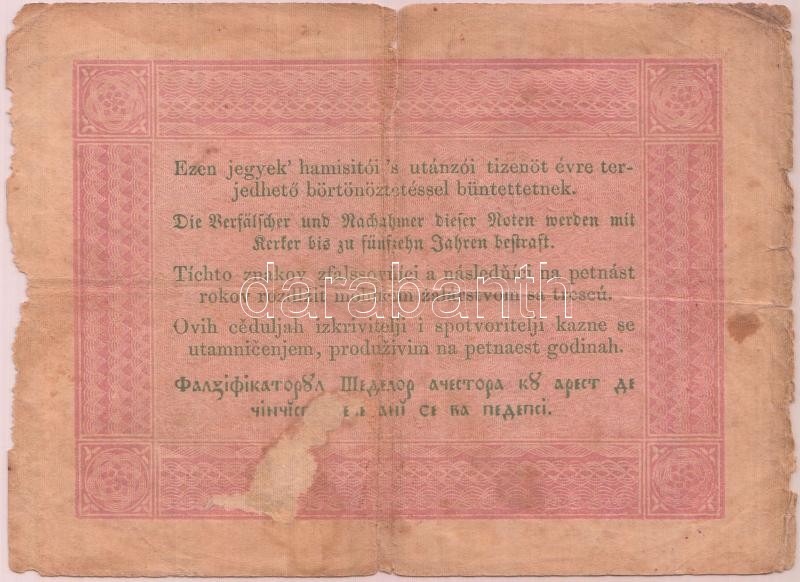 Ezen jegyek' hamisitói 's utánzói tizenöt évre ter-
jedhető börtönöztetéssel büntettetnek.
Die Verfälscher und Nachahmer dieser Noten werden mit
Kerker bis zu fünfzehn Jahren bestraft.
Tíchto znakov zfalssovňíci a následňíci na petnást
rokov žalárstvom sa trescú.
darabanth
Ovih cěduljah izkrivitelji i spotvoritelji kazne se
utamničenjem, produživim na petnaest godinah.
Фалциfікаторȣл Шеделор ачестора кȣ арест де
ані се ва педепсі.